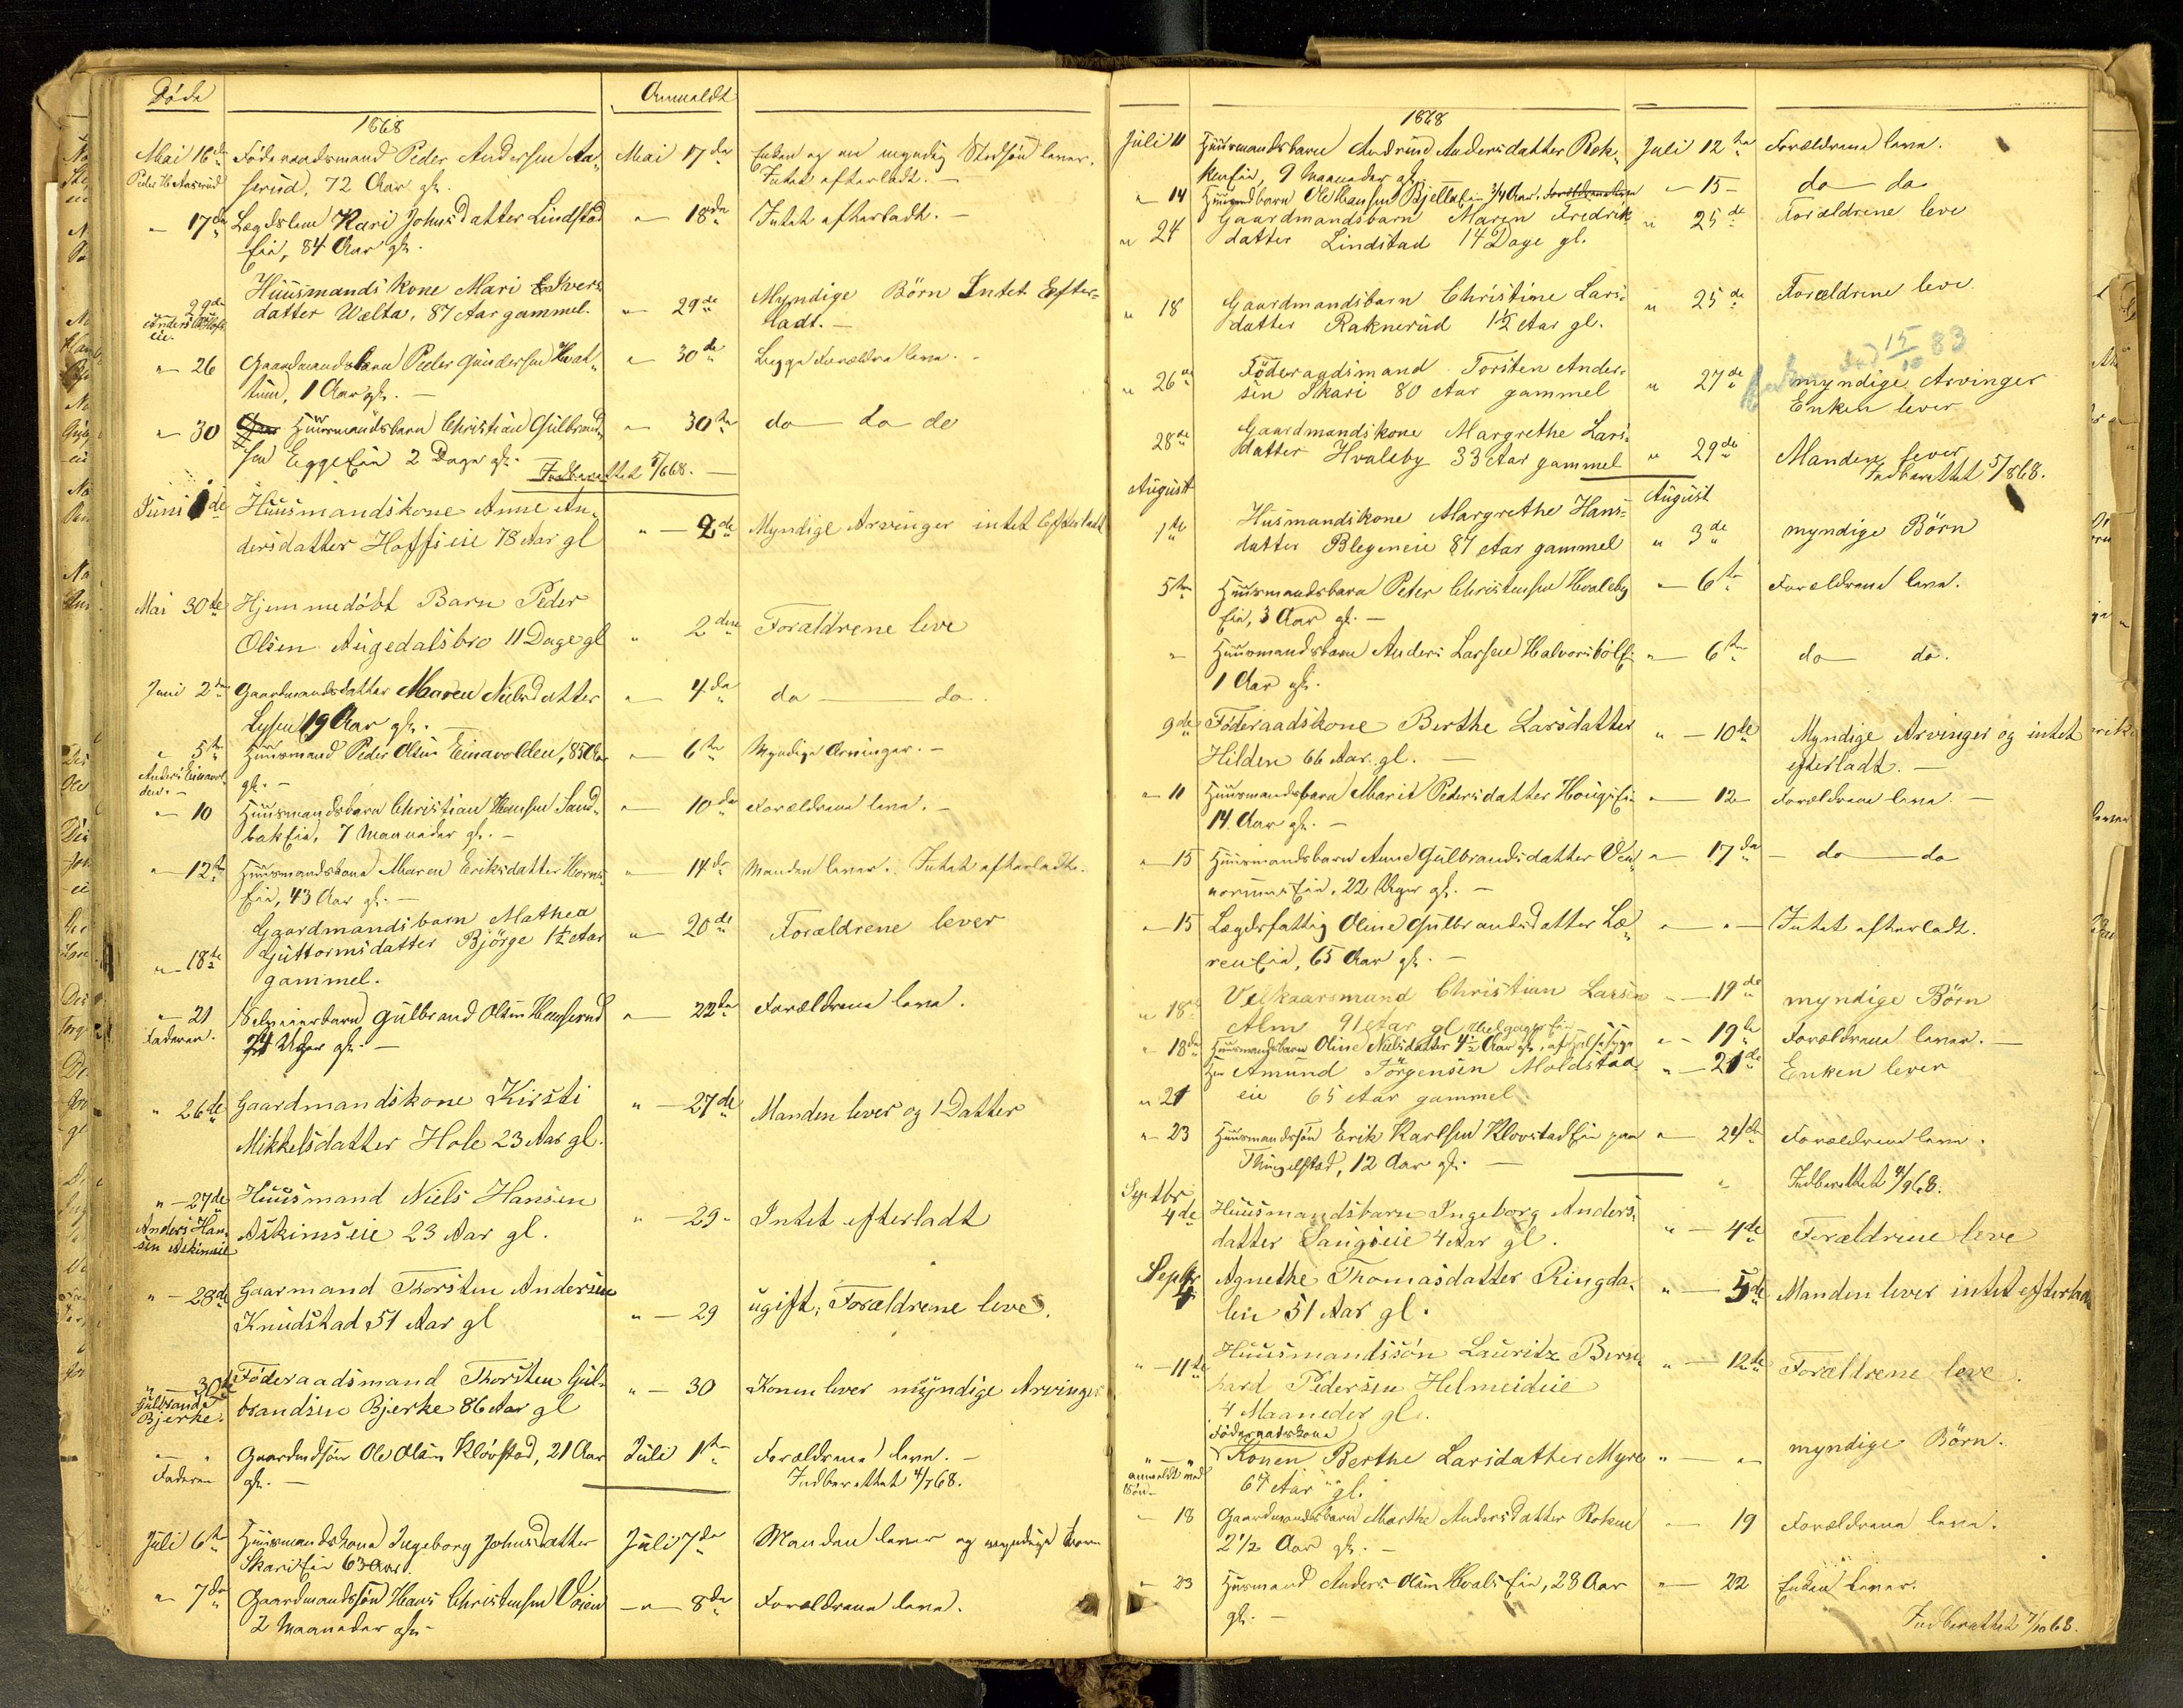 Døde Anmeldt
1868
Mai 16de Föderaadsmand Peder Andersen Aa- Mai 17de Enken og en myndig Stedsøn lever.
Peder H Aaserud serud, 72 Aar gl. Intet efterladt. —
" 17de Lægdslem Kari Johnsdatter Lindstad " — 18de Intet efterladt. —
Eie, 84 Aar gl.
Huusmandskone Mari Ivers-
29de datter Wælta, 87 Aar gammel. " — 29de Myndige Börn Intet Efter-
eie. ladt. —
" — 26 Gaardmandsbarn Peder Gundersen Hvat- " — 30de Begge Forældre leve. —
tum, 1 Aar gl. —
" — 30 Huusmandsbarn Christian Gulbrand- " — 30te do do do
sen Egge Eie 2 Dage gl.
Indberettet 5/668. —
Juni 1de Huusmandskone Anne An- " — 2de Myndige Arvinger intet Efterladt
dersdatter Hoffseie 78 Aar gl
Mai 30te Hjemmedöbt Barn Peder
Olsen Augedalsbro 11 Dage gl " 2den Forældrene leve
Juni 2den Gaardmandsdatter Maren Nielsdatter " — 4de do — do.
Lysen 19 Aar gl. —
" 5te Huusmand Peder Olsen Einavolden, 85 Aar " — 6te Myndige Arvinger. —
Anders Einavol- gl. —
den. —
" — 10 Huusmandsbarn Christian Hansen Sand- " — 10de Forældrene leve. —
bakEie, 7 Maaneder gl. —
" — 12te Huusmandskone Maren Eriksdatter Horns- " — 14de Manden lever. Intet efterladt.
Eie, 43 Aar gl. —
Gaardmandsbarn Mathea
Guttormsdatter Björge 1½ Aar " — 20de Forældrene lever
" — 18te gammel.
" — 21 Selveierbarn Gulbrand Olsen Hauserud " — 22de Forældrene leve.
Faderen. 24 Uger gl. —
" 26de Gaardmandskone Kirsti " — 27de Manden lever og 1 Datter
Mikkelsdatter Hole 23 Aar gl.
" — 27de Huusmand Niels Hansen
Anders Han- Askimseie 23 Aar gl. " — 29 — Intet efterladt
sen Askimseie
" — 28de Gaarmand Thorsten Andersen
Knudstad 51 Aar gl " — 29 ugift, Forældrene leve.
" — 30te Föderaadsmand Thorsten Gul- " — 30 Konen lever myndige Arvinger
Gulbrand brandsen Bjerke 86 Aar gl
Bjerke.
" — " Gaardmdsøn Ole Olsen Klövstad, 21 Aar Juli 1ste Forældrene leve. —
Faderen gl. — Indberettet 4/768.
Juli 6te Huusmandskone Ingeborg Johnsdatter Juli 7de Manden lever og myndige Born
SkariEie 63 Aar.
" 7de Gaardmandssön Hans Christensen Voien — " — 8de Forældrene leve.
2 Maaneder gl. —
1868
Juli 11 Huusmandsbarn Andrine Andersdatter Rek- Juli 12te Forældrene leve.
kenEie, 9 Maaneder gl.
" 14 Huusmdbarn Ole Hansen BjellaEie 3/4 Aar. " — 15 — do do
Gaardmandsbarn Maren Fredrik- " 25de Forældrene leve
" 24 datter Lindstad 14 Dage gl.
" 18 Gaardmandsbarn Christine Lars- " 25de Forældrene leve
datter Raknerud 1½ Aar gl.
Enken død 15/10 83
" 26de Föderaadsmand Torsten Ander- " 27de myndige Arvinger
sen Skari 80 Aar gammel Enken lever
28de Gaardmandskone Margrethe Lars-
datter Hvaleby 33 Aar gammel " 29de Manden lever
Indberettet 5/868.
August August
1ste Husmandskone Margrethe Hans-
datter Blegeneie 87 Aar gammel " 3de myndige Börn
5te Huusmandsbarn Peter Christensen Hvaleby " — 6te Forældrene leve.
Eie, 3 Aar gl. —
" Huusmandsbarn Anders Larsen HalvorsbölE. " — 6te do do.
1 Aar gl.
9de Föderaadskone Berthe Larsdatter " — 10de Myndige Arvinger og intet
Hilden 66 Aar gl. — efterladt. —
" — 11 Huusmandsbarn Marit Pedersdatter HougsEie " — 12 — Forældrene leve. —
14 Aar gl. —
" — 15 Huusmandsbarn Anne Gulbrandsdatter Ven- " — 17de — do — do
Eie, 22 Uger gl. —
" — 15 Lægdsfattig Oline Gulbrandsdatter Læ- " — " — Intet efterladt.
renEie, 65 Aar gl. —
" 18de Velkaarsmand Christian Larsen " — 19de myndige Börn
Alm 91 Aar gl
" 18de Huusmandsbarn Oline Nielsdatter 4½ Aar gl. " — 19de Forældrene lever. —
Amund Törgensen Moldstad " — 21de Enken lever
" 21 eie 65 Aar gammel
" — 23 Huusmandssön Erik Karlsen KlovstadEie paa " — 24de Forældrene leve.
Thingelstad, 12 Aar gl. —
Indberettet 4/968.
Septbr
4de Huusmandsbarn Ingeborg Anders- " — 4de Forældrene leve
datter Sangseie 4 Aar gl.
Septbr Agnethe Thomasdatter Ringda- " — 5de Manden lever intet efterladt
4 len 51 Aar gl.
" — 11te Huusmandssön Lauritz Bern- " — 12te Forældrene leve.
hard Pedersen Helmeideie
4 Maaneder gl.
Föderaadskone
" — " Konen Berthe Larsdatter Myre " — " myndige Börn.
anmeldt ved 67 Aar gl.
Sön —
" — 18 Gaardmandsbarn Marthe Andersdatter Roken " — 19 Forældrene leve.
2½ Aar gl. —
" — 23 Husmand Anders Olsen HvalsEie, 28 Aar " — 22 Enken lever.
gl. —
Indberettet 7/1068.